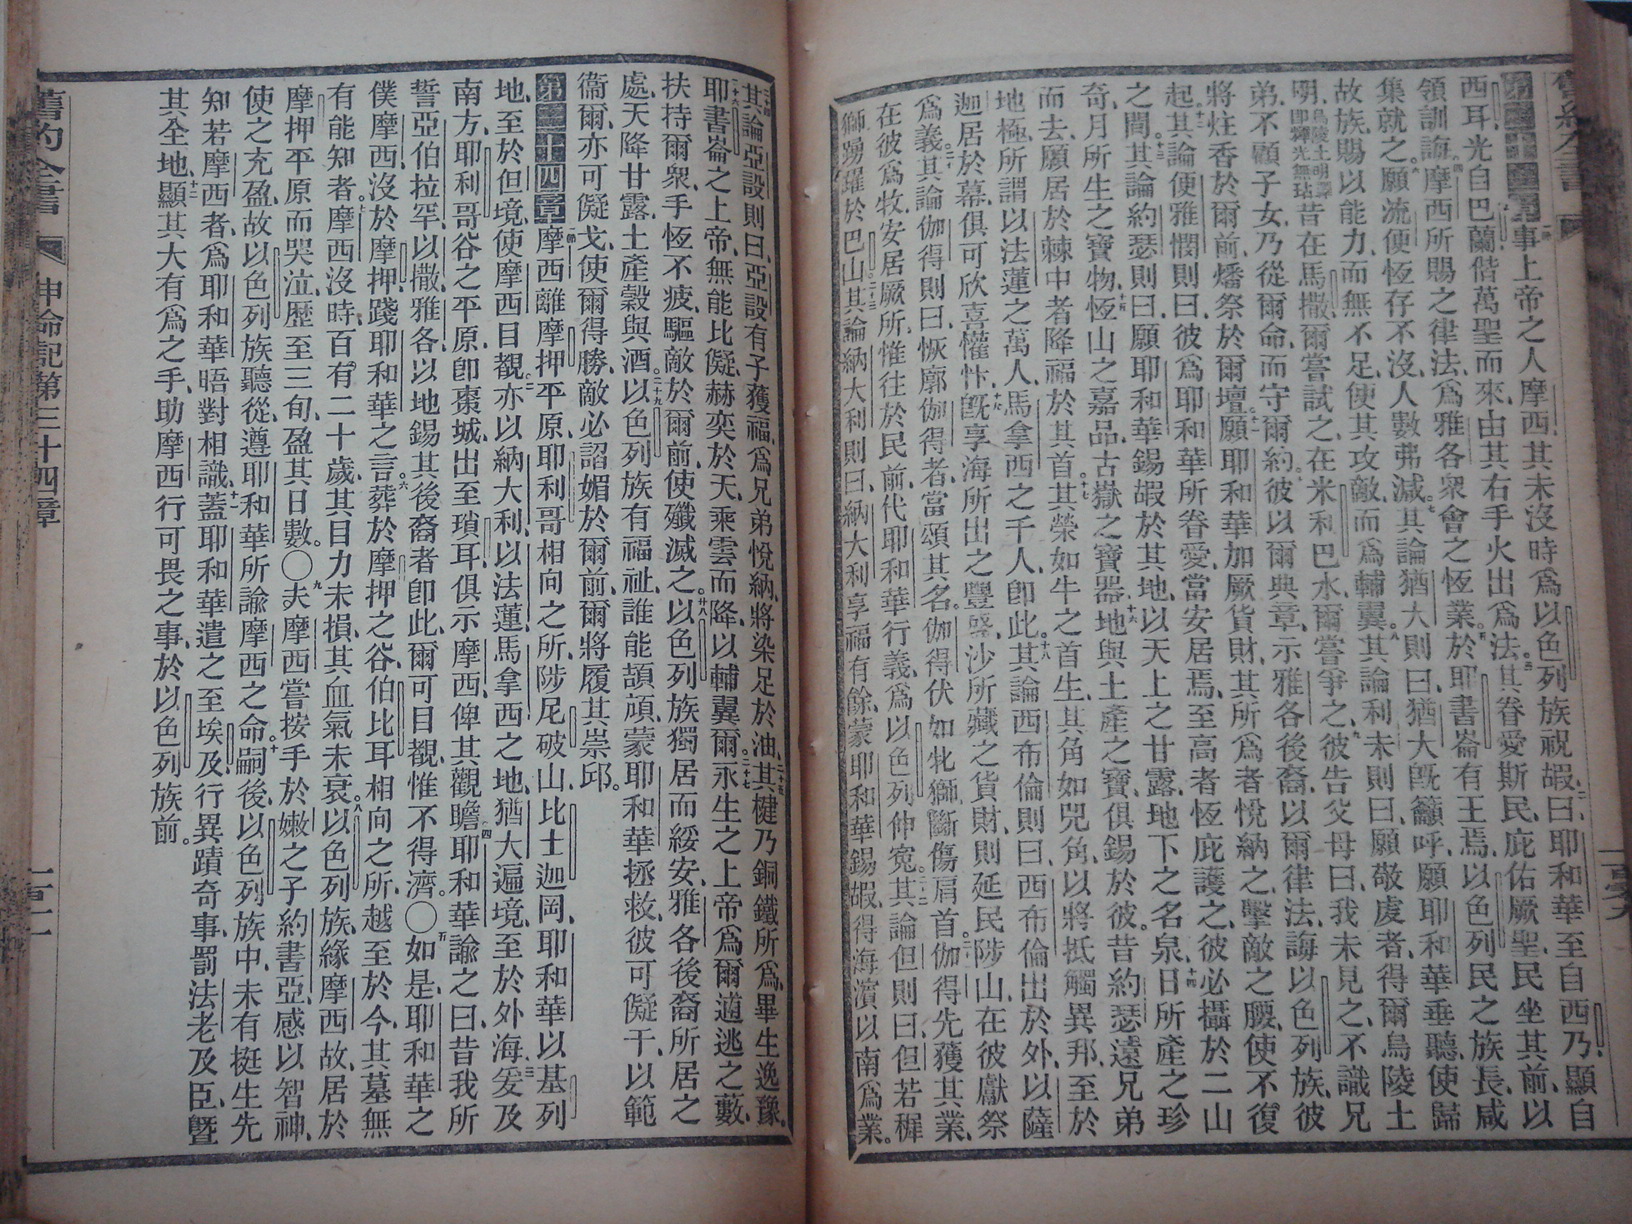 舊約全書
第三十三章事上帝之人摩西其未沒時爲以色列族祝嘏曰耶和華至自西乃顯自
西耳光自巴蘭偕萬聖而來由其右手火出爲法其眷愛斯民庇佑厥聖民坐其前以
領訓誨摩西所賜之律法爲雅各衆會之恆業於耶書崙有王焉以色列民之族長咸
集就之願流便恆存不沒人數弗減其論猶大則曰猶大旣籲呼願耶和華垂聽使歸
故族賜以能力而無不足使其攻敵而爲輔翼其論利未則曰願敬虔者得爾烏陵土
明烏陵土明譯卽輝光無玷昔在馬撒爾嘗試之在米利巴水爾嘗爭之彼告父母曰我未見之不識兄
弟不顧子女乃從爾命而守爾約彼以爾典章示雅各後裔以爾律法誨以色列族彼
將炷香於爾前燔祭於爾壇願耶和華加厥貨財其所爲者悅納之擊敵之腰使不復
起其論便雅憫則曰彼爲耶和華所眷愛當安居焉至高者恆庇護之彼必攝於二山
之間其論約瑟則曰願耶和華錫嘏於其地以天上之甘露地下之名泉日所產之珍
奇月所生之寶物恆山之嘉品古嶽之寶器地與土產之寶俱錫於彼昔約瑟遠兄弟
而去願居於棘中者降福於其首其榮如牛之首生其角如兕角以將抵觸異邦至於
地極所謂以法蓮之萬人馬拿西之千人卽此其論西布倫則曰西布倫出於外以薩
迦居於幕俱可欣喜懽忭旣享海所出之豐盛沙所藏之貨財則延民陟山在彼獻祭
爲義其論伽得則曰恢廓伽得者當頌其名伽得伏如牝獅斷傷肩首伽得先獲其業
在彼爲牧安居厥所惟往於民前代耶和華行義爲以色列伸寃其論但則曰但若穉
獅踴躍於巴山其論納大利則曰納大利享福有餘蒙耶和華錫嘏得海濱以南爲業
其論亞設則曰亞設有子獲福爲兄弟悅納將染足於油其楗乃銅鐵所爲畢生逸豫
耶書崙之上帝無能比儗赫奕於天乘雲而降以輔翼爾永生之上帝爲爾逋逃之藪
扶持爾衆手恆不疲驅敵於爾前使殲滅之以色列族獨居而綏安雅各後裔所居之
處天降甘露土產穀與酒以色列族有福祉誰能頡頏蒙耶和華拯救彼可儗干以範
衞爾亦可儗戈使爾得勝敵必諂媚於爾前爾將履其崇邱
第三十四章摩西離摩押平原耶利哥相向之所陟尼破山比士迦岡耶和華以基列
地至於但境使摩西目覩亦以納大利以法蓮馬拿西之地猶大遍境至於外海爰及
南方耶利哥谷之平原卽棗城出至瑣耳俱示摩西俾其觀瞻耶和華諭之曰昔我所
誓亞伯拉罕以撒雅各以地錫其後裔者卽此爾可目覩惟不得濟〇如是耶和華之
僕摩西沒於摩押踐耶和華之言葬於摩押之谷伯比耳相向之所越至於今其墓無
有能知者摩西沒時百有二十歲其目力未損其血氣未衰以色列族緣摩西故居於
摩押平原而哭泣歷至三旬盈其日數〇夫摩西嘗按手於嫩之子約書亞感以智神
使之充盈故以色列族聽從遵耶和華所諭摩西之命嗣後以色列族中未有挺生先
知若摩西者爲耶和華晤對相識蓋耶和華遣之至埃及行異蹟奇事罰法老及臣曁
其全地顯其大有爲之手助摩西行可畏之事於以色列族前
舊約全書 申命記第三十四章